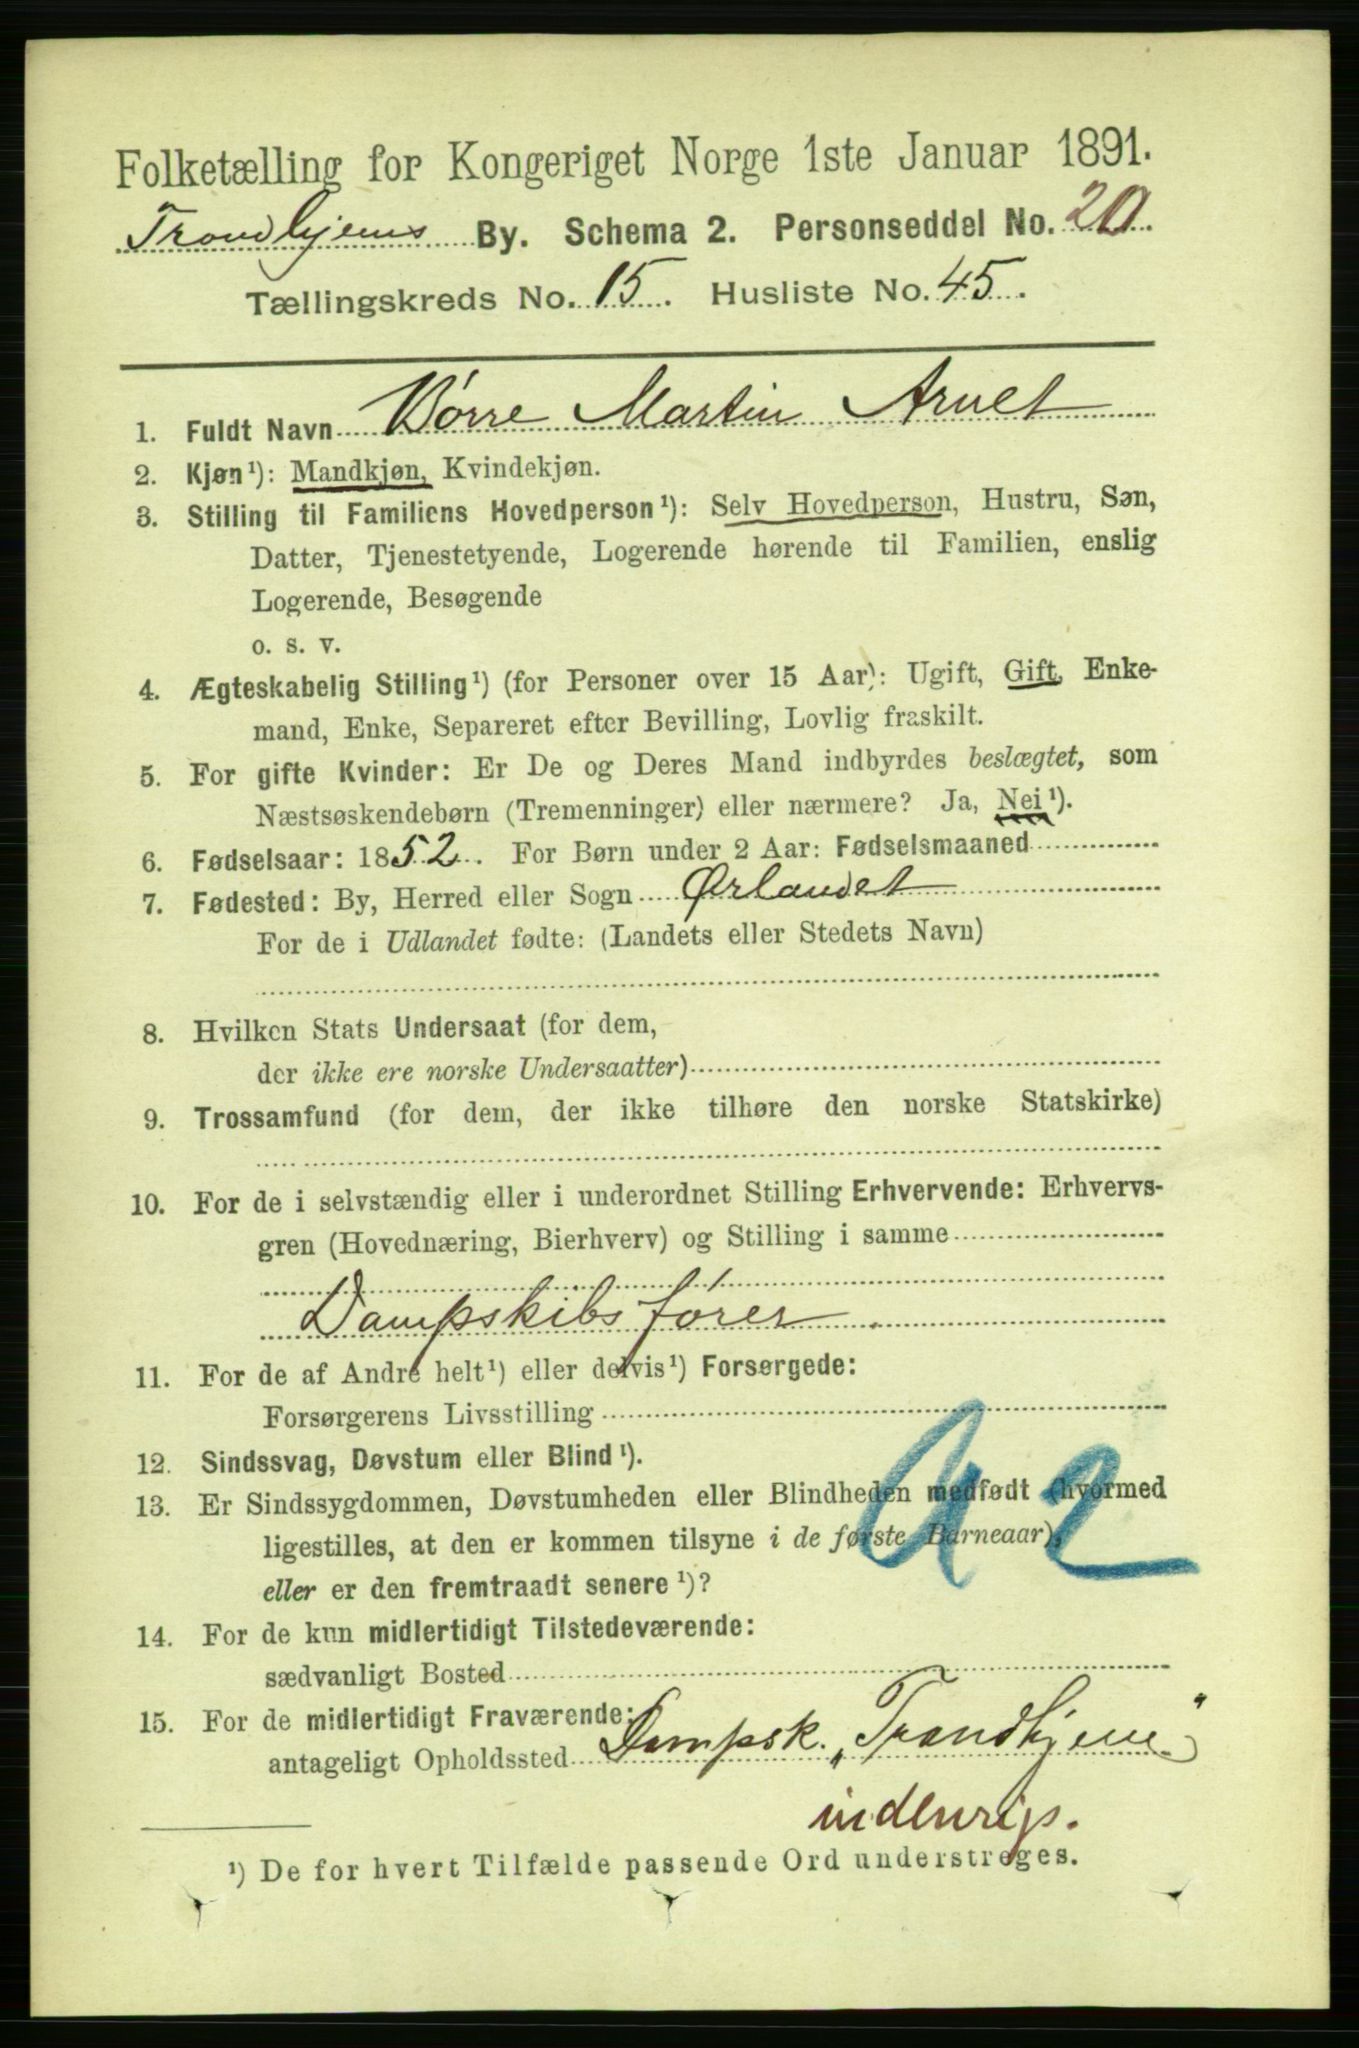 Folketælling for Kongeriget Norge 1ste Januar 1891.
Trondhjems By. Schema 2. Personseddel No. 20.
Tællingskreds No. 15. Husliste No. 45.
1. Fuldt Navn Børre Martin Arnet
2. Kjøn¹): Mandkjøn, Kvindekjøn.
3. Stilling til Familiens Hovedperson¹): Selv Hovedperson, Hustru, Søn,
Datter, Tjenestetyende, Logerende hørende til Familien, enslig
Logerende, Besøgende
o. s. v.
4. Ægteskabelig Stilling¹) (for Personer over 15 Aar): Ugift, Gift, Enke-
mand, Enke, Separeret efter Bevilling, Lovlig fraskilt.
5. For gifte Kvinder: Er De og Deres Mand indbyrdes beslægtet, som
Næstsøskendebørn (Tremenninger) eller nærmere? Ja, Nei¹).
6. Fødselsaar: 1852. For Børn under 2 Aar: Fødselsmaaned
7. Fødested: By, Herred eller Sogn Ørlandet
For de i Udlandet fødte: (Landets eller Stedets Navn)
8. Hvilken Stats Undersaat (for dem,
der ikke ere norske Undersaatter)
9. Trossamfund (for dem, der ikke tilhøre den norske Statskirke)
10. For de i selvstændig eller i underordnet Stilling Erhvervende: Erhvervs-
gren (Hovednæring, Bierhverv) og Stilling i samme
Dampskibsfører.
11. For de af Andre helt¹) eller delvis¹) Forsørgede:
Forsørgerens Livsstilling
12. Sindssvag, Døvstum eller Blind¹).
13. Er Sindssygdommen, Døvstumheden eller Blindheden medfødt (hvormed
ligestilles, at den er kommen tilsyne i de første Barneaar),
eller er den fremtraadt senere¹)?
14. For de kun midlertidigt Tilstedeværende:
sædvanligt Bosted
15. For de midlertidigt Fraværende:
antageligt Opholdssted Dampsk. „Trondhjem“
indenrigs.
¹) De for hvert Tilfælde passende Ord understreges.